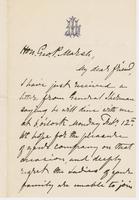 Hon. Geo. P. Marsh,
My dear friend,
I have just received a
letter from General Sherman
saying he will dine with me
at 6 o'clock Monday Feby 12th
We hope for the pleasure
of your company on that
occasion, and deeply
regret the ladies of your
family are unable to join